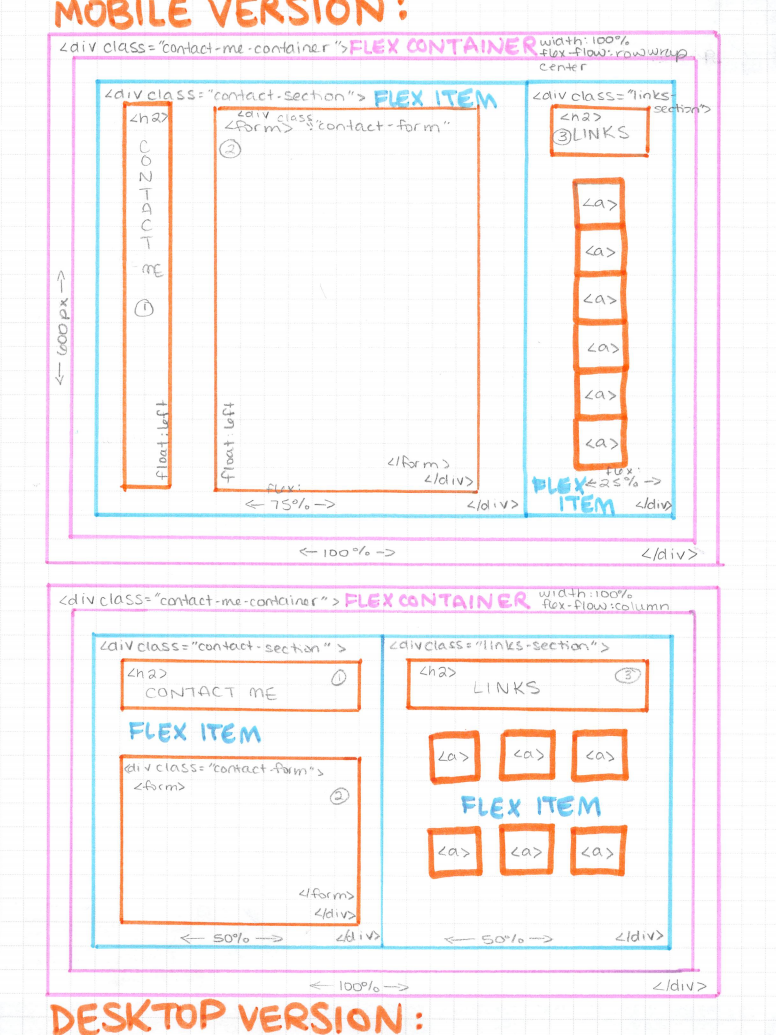 MOBILE VERSION:
<div class="contact-me-container"> FLEX CONTAINER width: 100%
flex-flow: row wrap
center
<div class="contact-section"> FLEX ITEM
<div class="links-section">
<h2>
CONTACT ME
①
float: left
<div class
<form> "contact-form"
②
float left
</form>
</div>
flex:
<- 75% ->
</div>
<h2>
③ LINKS
<a>
<a>
<a>
<a>
<a>
<a>
flex:
<- 25% ->
FLEX ITEM
</div>
<- 600px ->
<- 100% ->
</div>
<div class="contact-me-container"> FLEX CONTAINER width: 100%
flex-flow: column
<div class="contact-section">
<h2>
①
CONTACT ME
FLEX ITEM
<div class="contact-form">
<form>
②
</form>
</div>
<- 50% ->
</div>
<div class="links-section">
<h2>
③
LINKS
<a> <a> <a>
FLEX ITEM
<a> <a> <a>
<- 50% ->
</div>
<- 100% ->
</div>
DESKTOP VERSION: